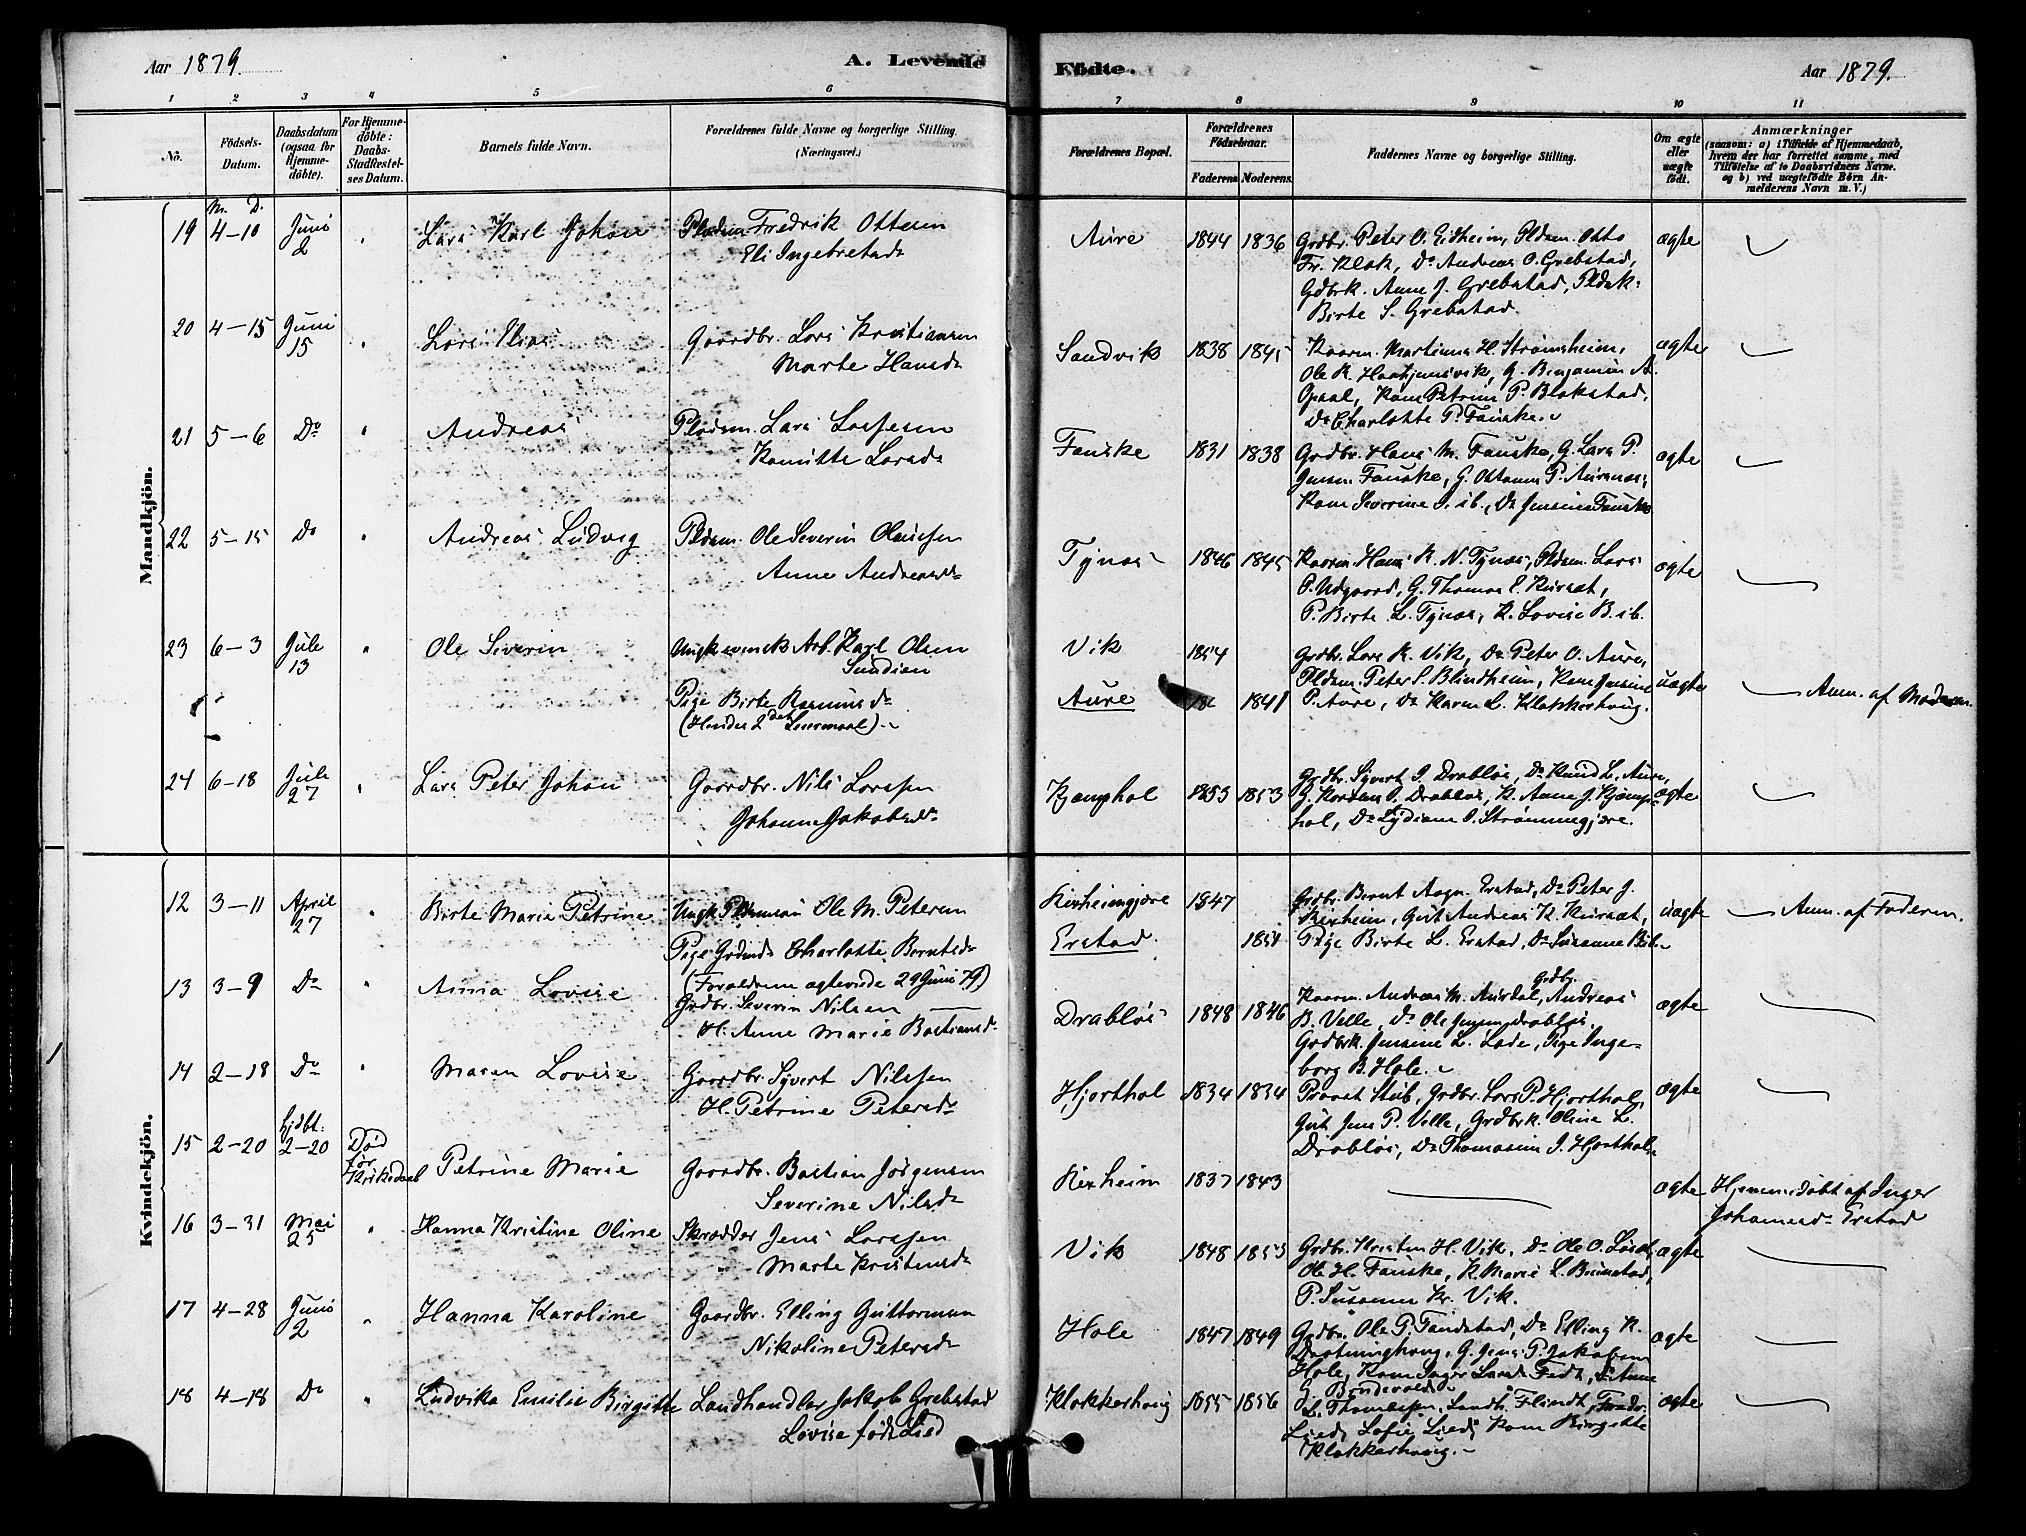 Aar 1879.
A. Levende
Födte.
Aar 1879.
1 2 3 4 5 6 7 8 9 10 11
No.
Födsels-
Datum.
Daabsdatum
(ogsaa for
Hjemme-
döbte).
For Hjemme-
döbte:
Daabs-
Stadfæstel-
ses Datum.
Barnets fulde Navn.
Forældrenes fulde Navne og borgerlige Stilling.
(Næringsvei.)
Forældrenes Bopæl.
Forældrenes
Födselsaar.
Faderens Moderens.
Faddernes Navne og borgerlige Stilling.
Om ægte
eller
uægte
födt.
Anmærkninger
(saasom: a) i Tilfælde af Hjemmedaab,
hvem der har forrettet samme, med
Tilföielse af to Daabsvidners Navne.
og b) ved uægtefödte Börn An-
melderens Navn m. V.)
Mandkjön.
M. D.
19 4-10 Juni
2
" Lars Karl Johan Pladsm Fredrik Ottesen
Eli Ingebretsdr
Aure 1844 1836 Grdbr. Peter O. Eidheim, Pldsm. Otto
Fr. Klok, Do Andreas O. Grebstad,
Gdbrk. Anne J. Grebstad, Pldsk.
Birte S. Grebstad.
ægte
20 4-15 Juni
15
" Lars Elias Gaardbr. Lars Kristiansen
Marte Hansdr
Sandvik 1838 1845 Kaarm. Martinus H. Strømsheim,
Ole K. , G. Benjamin A.
Opsal, Kone Petrine P. Blakstad,
Do Charlotte P. Fauske.
ægte
21 5-6 Do " Andreas Pladsm. Lars Larssen
Larsdr
Fauske 1831 1838 Grdbr. Hans M. Fauske, G. Lars P.
Jensen Fauske, G. P. Aursnes,
Kone Severine J. ib., Do Jensine Fauske
ægte
22 5-15 Do " Andreas Ludvig Pldsm. Ole Severin Olaussen
Anne Andreasdr
Tynes 1846 1845 Kaarm. Hans K. N. Tynes, Pldsm. Lars
P. Udgaard, G. Thomas E. Kurset,
P. Birte L. Tynes, K. Lovise B. ib.
ægte
23 6-3 Juli
13
" Ole Severin Ungk svensk Arb. Karl Olsen
Sundien
Pige Birte Rasmusdr
(Hendes 2det Leiermaal).
Vik 1854
Aure 18 1841
Grdbr. Lars K. Vik, Do Peter O. Aure,
Pldsm. Peter S. Blindheim, Kone Jensine
P. Aure, Do Karen L. Klokkerhaug.
uægte Anm. af Moderen.
24 6-18 Juli
27
" Lars Peter Johan Gaardbr. Nils Larssen
Johanne Jakobsdr
Kjemphol 1853 1853 Grdbr. Syvert I. Drabløs, Do Knud L. Aure,
G. Karsten P. Drabløs, K. Anne J. Kjemp-
hol, Do Lydiane P. Strømmegjære.
ægte
Kvindekjön.
12 3-11 April
27
" Birte Marie Petrine Ungk Pldsmsøn Ole M. Petersen
Pige Grdmds Charlotte Berntsdr
(Forældrene ægteviede 29 Juni 79)
Rexheimgjære 1847
Erstad. 1851
Grdbr. Bernt Aagn. Erstad, Do Peter J.
Rexheim, Gut Andreas K. Kurset,
Pige Birte L. Erstad, Do Susanne B. ib.
uægte Anm. af Faderen.
13 3-9 Do " Anna Lovise Grdbr. Severin Nilsen
H. Anne Marie Bastiansdr
Drabløs 1848 1846 Kaarm. Andreas M. Aursdal, Grdbr. Andreas
B. Velle, Do Ole Jensen Drabløs,
Grdbrk. Jensine L. Lade, Pige Inge-
borg B. Hole.
ægte
14 2-18 Do " Maren Lovise Gaardbr. Syvert Nilssen
H. Petrine Petersdr
Hjorthol 1834 1834 Provst Stub, Grdbr. Lars P. Hjorthol,
Gut Jens P. Velle, Grdbrk Oline L.
Drabløs, Do Thomasine J. Hjorthol.
ægte
15 2-20 hjdbt:
2-20
Død
før
Kirkedaab
Petrine Marie Gaardbr. Bastian Jørgensen
Severine Nilsdr
Rexheim 1837 1843 ægte Hjemmedøbt af Inger
Johannesdr Erstad
16 3-31 Mai
25
" Hanna Kristine Oline Skrædder Jens Larssen
Marte Kristensdr
Vik 1848 1853 Grdbr. Kristen H. Vik, Do Ole O. Løset,
Ole H. Fauske, K. Marie L. Brunstad,
P. Susanne Kr. Vik.
ægte
17 4-28 Juni
2
" Hanna Karoline Gaardbr. Elling Guttormsen
Nikoline Petersdr
Hole 1847 1849 Grdbr. Ole P. Tandstad, Do Elling K.
Dronninghaug, G. Jens P. Jakobsen
Hole, Kone Inger Larsdr Fedt, P. Anne
G. Bondevold
ægte
18 4-18 Do " Ludvika Emilie Birgitte Landhandler Jakob Grebstad
Lovise født Lied
Klokkerhaug 1855 1856 L. Thomassen, Landh. Flindt, Fredr.
Lied, Sofie Lied, Kone Birgitte
Klokkerhaug.
ægte